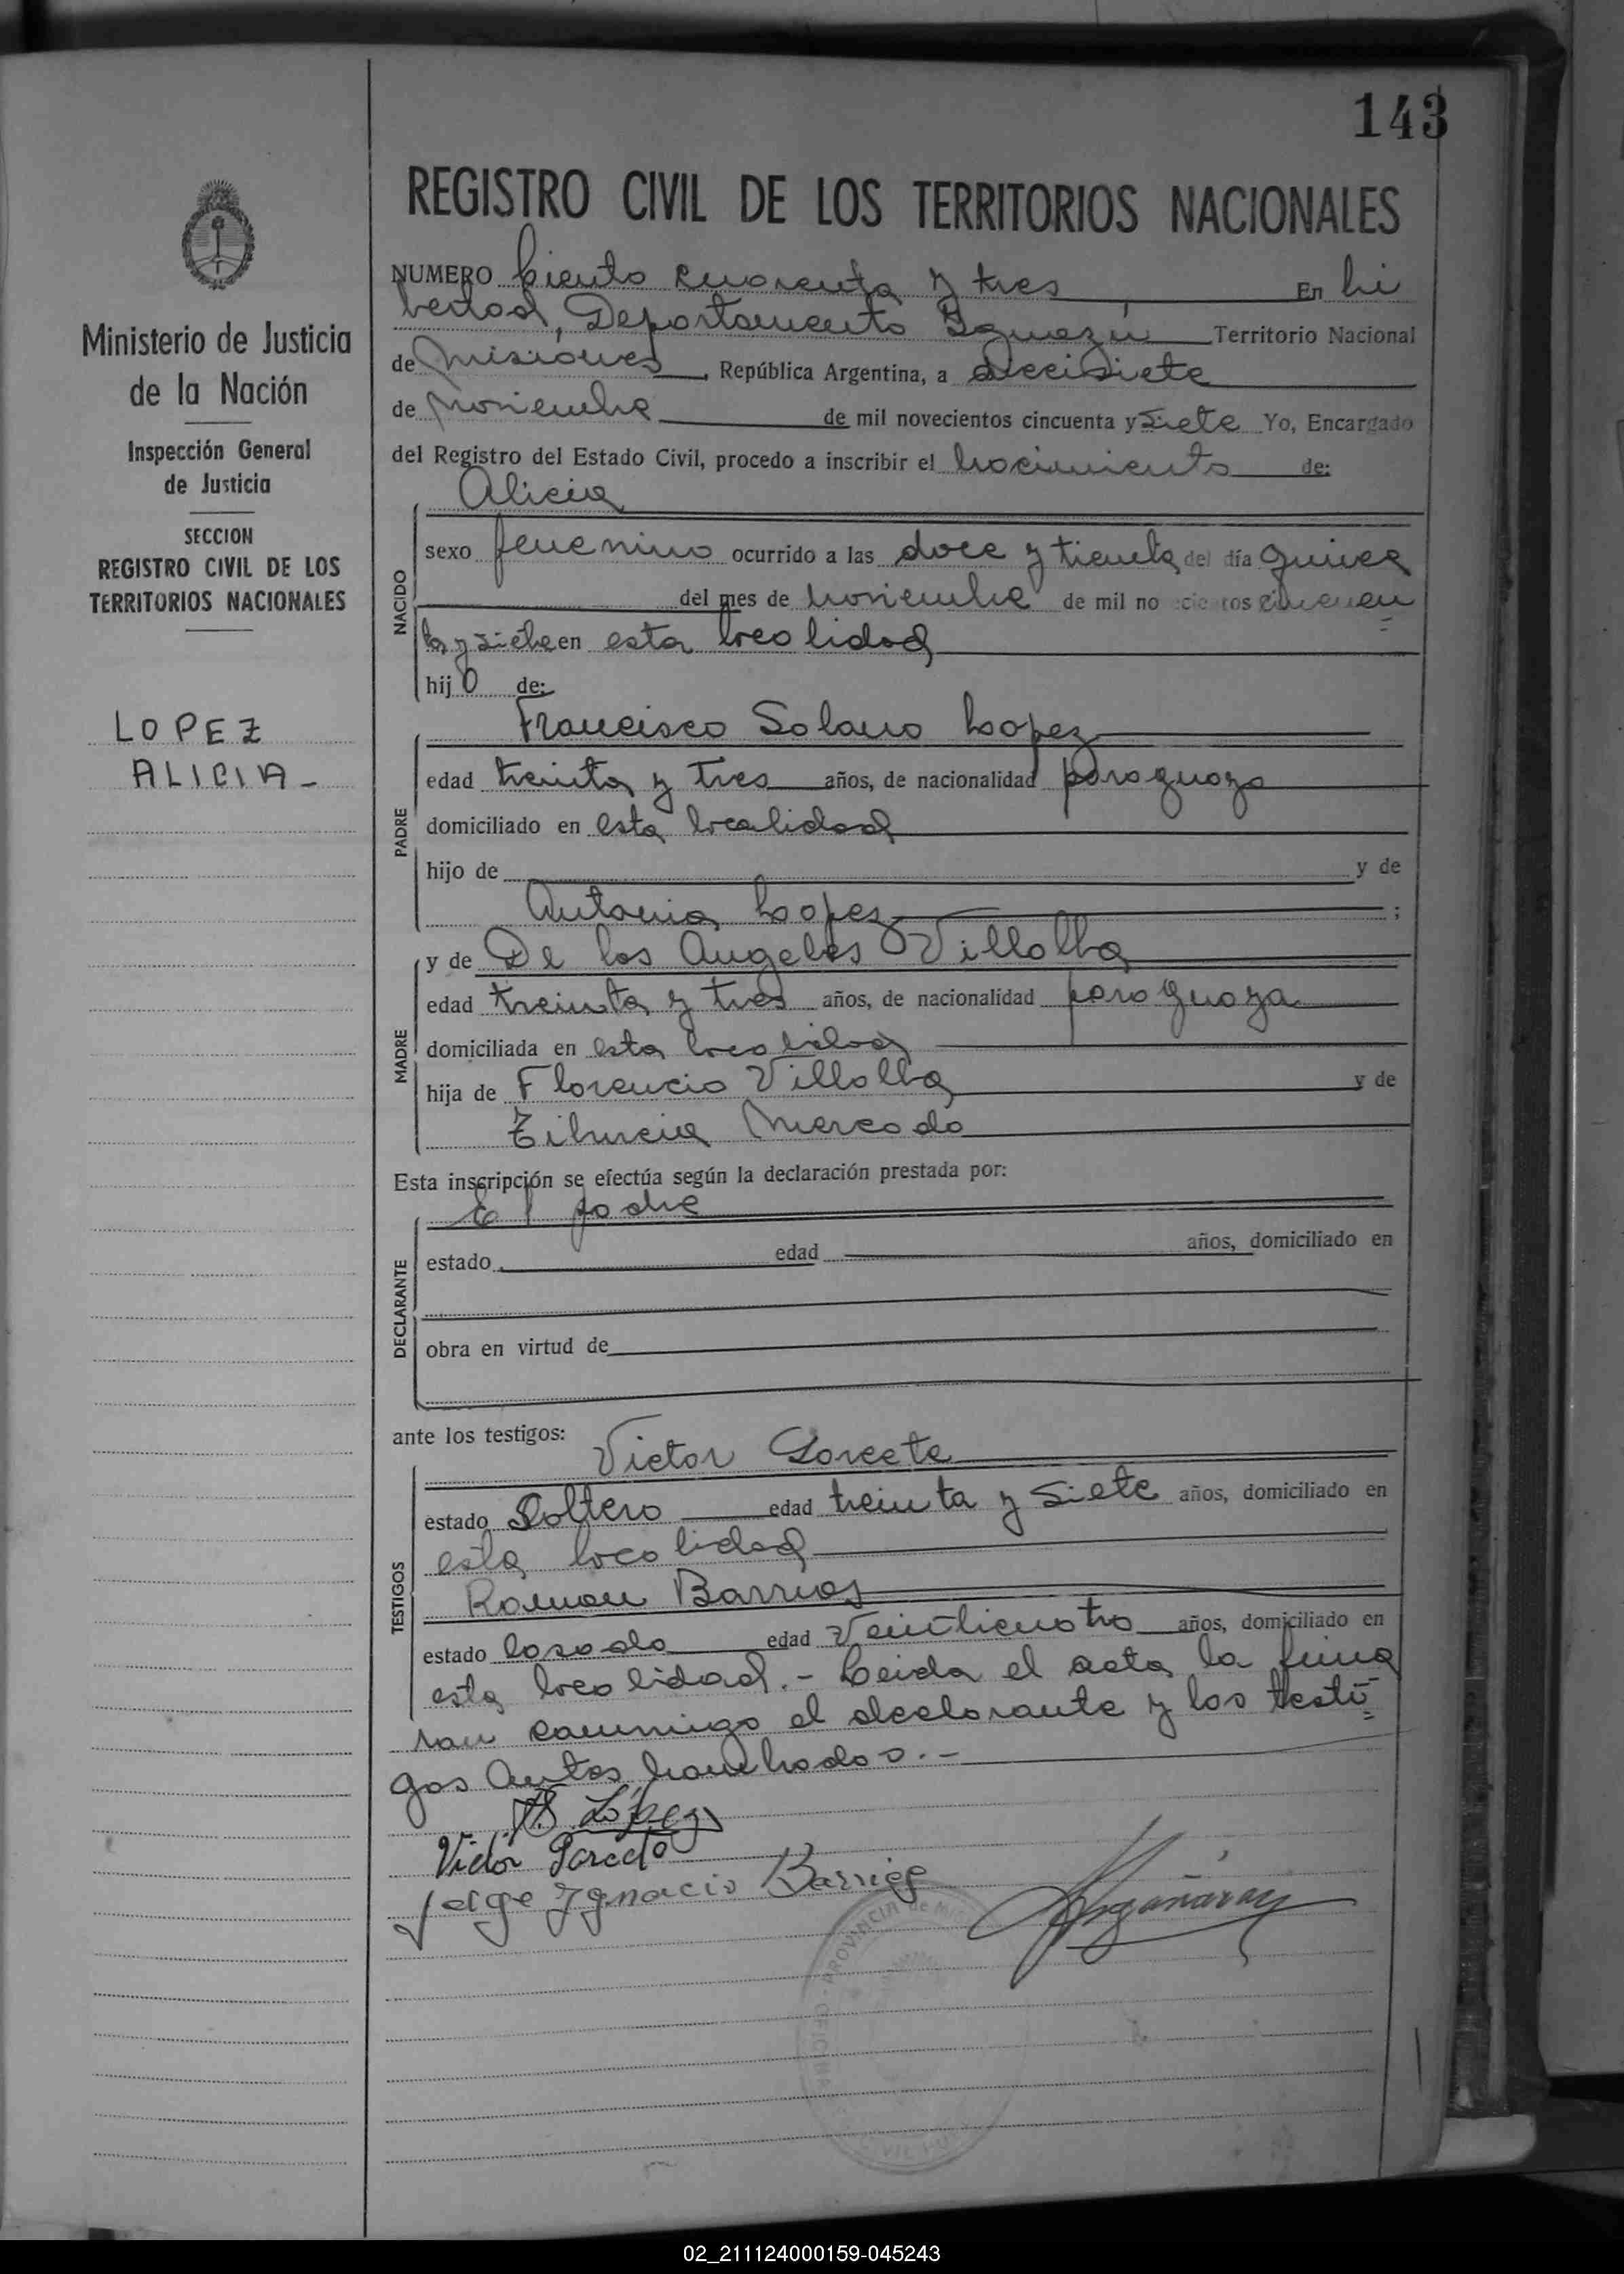 143
REGISTRO CIVIL DE LOS TERRITORIOS NACIONALES
Ministerio de Justicia
de la Nación
Inspección General
de Justicia
SECCION
REGISTRO CIVIL DE LOS
TERRITORIOS NACIONALES
LOPEZ
ALICIA -
NUMERO Ciento cuarenta y tres En Li
bertad, Departamento Iguazú Territorio Nacional
de Misiones, República Argentina, a diecisiete
de Noviembre de mil novecientos cincuenta y siete Yo, Encargado
del Registro del Estado Civil, procedo a inscribir el Nacimiento de:
Alicia
NACIDO
sexo femenino ocurrido a las doce y treinta del día quince
del mes de Noviembre de mil novecientos cincuen
ta y siete en esta localidad
hijo de:
PADRE
Francisco Solano Lopez
edad treinta y tres años, de nacionalidad paraguayo
domiciliado en esta localidad
hijo de y de
Antonia Lopez ;
MADRE
y de De los Angeles Villalba
edad treinta y tres años, de nacionalidad paraguaya
domiciliada en esta localidad
hija de Florencio Villalba y de
Tiburcia Mercado
Esta inscripción se efectúa según la declaración prestada por:
El padre
DECLARANTE
estado edad años, domiciliado en
obra en virtud de
ante los testigos:
TESTIGOS
Victor Garcete
estado Soltero edad treinta y siete años, domiciliado en
esta localidad
Ramon Barrios
estado Casado edad Veinticuatro años, domiciliado en
esta localidad. - Leida el acta la firma
ran conmigo el declarante y los testi
gos Antes Nombrados. -
F.S. López
Victor Garcete
Jorge Ygnacio Barrios
PROVINCIA de
02_211124000159-045243